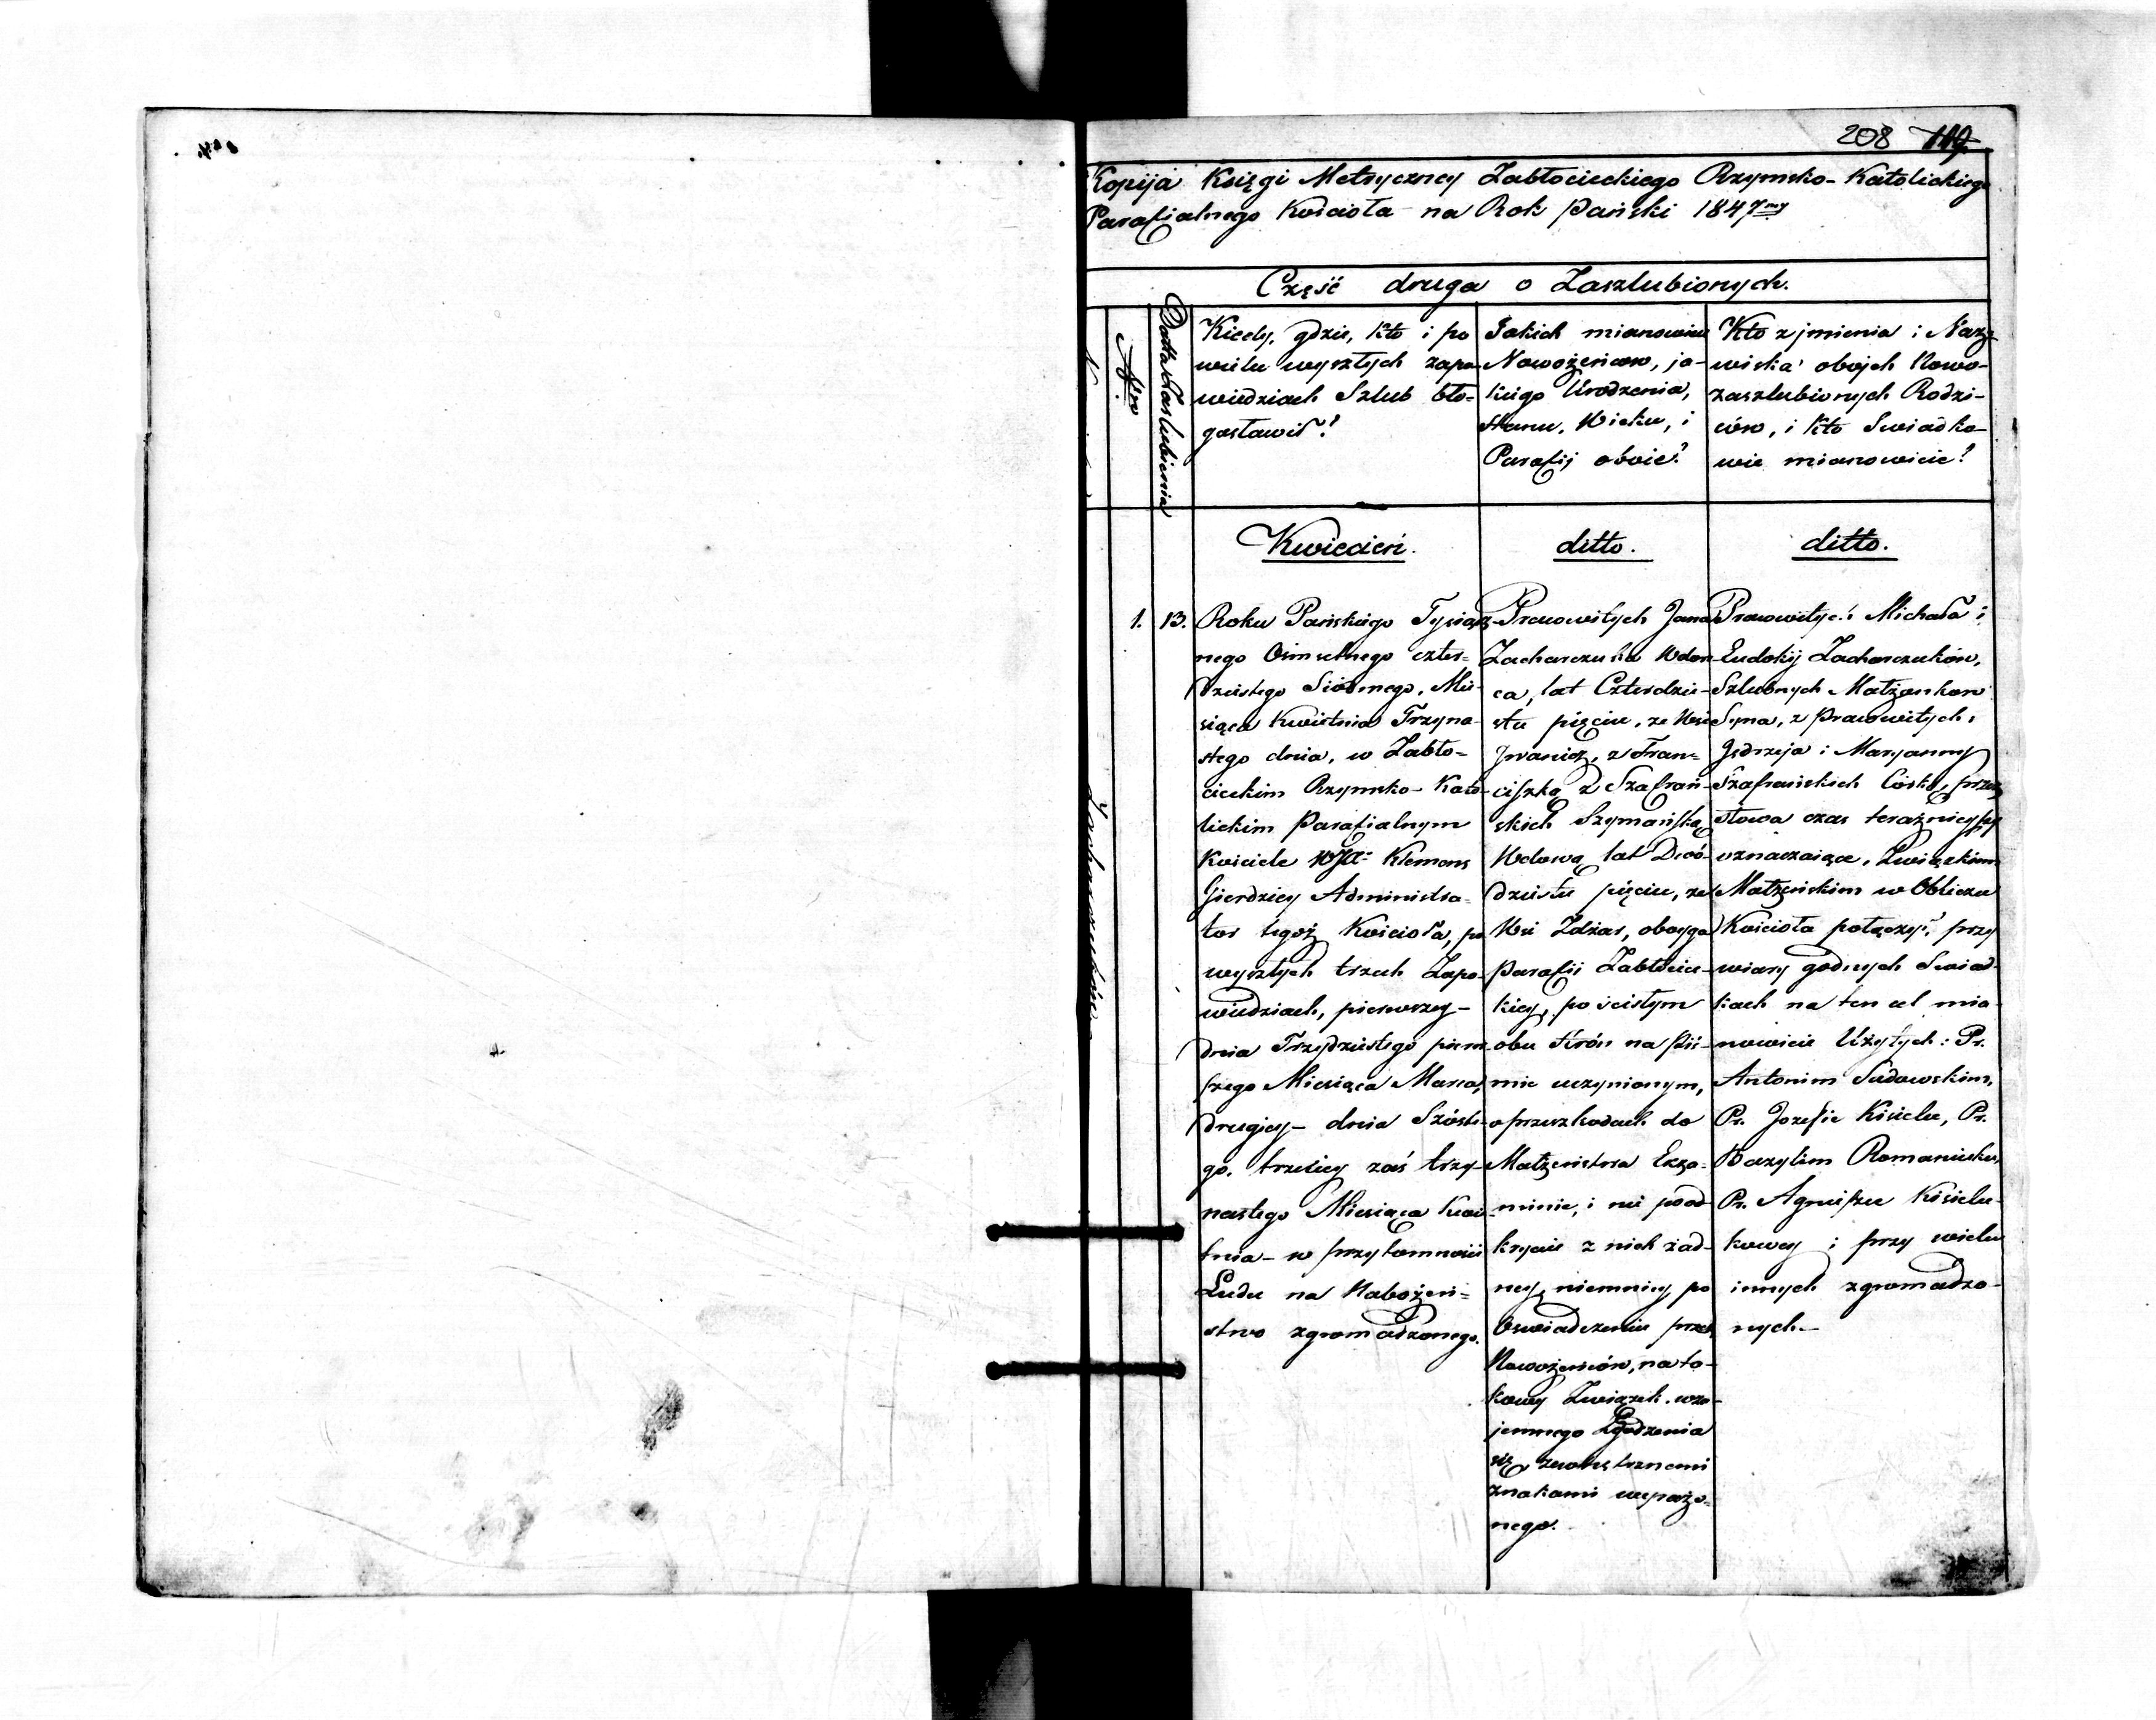 208 119.
Kopija Księgi Metryczney Zabłocieckiego Rzymsko-Katolickiego
Parafialnego Kościoła na Rok Pański 1847my
Część druga o Zaszlubionych.
Nro
Datta Zaslubienia
Kiedy, gdzie, kto i po
wielu wyszłych zapo-
wiedziach Szlub bło=
gosławił?
Jakich mianowicie
Nowożeńcow, ja-
kiego Urodzenia,
Stanu, Wieku, i
Parafij oboie?
Kto z jmienia i Naz-
wiska obojch Nowo-
zaszlubionych Rodzi-
ców, i kto Swiadko-
wie mianowicie?
Kwiecień.
ditto.
ditto.
1. 13.
Roku Pańskiego Tysiącz-
nego Ośmsetnego czter=
dziestego Siódmego, Mie-
siąca Kwietnia Trzyna-
stego dnia, w Zabło-
cieckim Rzymsko-Kato-
lickim Parafialnym
Kościele WJX: Klemens
Gierdziey Administra-
tor tegoż Kościoła, po
wyszłych trzech Zapo-
wiedziach, pierwszey-
dnia Trzydziestego pierw-
szego Miesiąca Marca,
drugiey- dnia Szóste-
go, trzeciey zaś trzy-
nastego Miesiąca Kwie-
tnia- w przytomności
Ludu na Nabożeń=
stwo zgromadzonego.
Pracowitych Jana
Zacharczuka Wdow-
ca, lat Czterdzie-
stu pięciu, ze Wsi
Jwanicz, z Fran=
ciszką z Szafrań-
skich Szymańską
Wdową lat Dwó-
dziestu pięciu, ze
Wsi Zdżar, oboyga
Parafii Zabłociec-
kiey, po ścisłym
obu strón na piś-
mie uczynionym,
o przeszkodach do
Małżeństwa Exa-
minie, i nie pood-
kryciu z nich żad-
ney, niemniey po
Oswiadczeniu przez
Nowożencow, na ta-
kowy Związek wza-
jemnego Zgodzenia
się zewnętrznemi
znakami wyrażo-
nego.
Pracowitych Michała i
Eudokij Zacharczuków,
Szlubnych Małżonkow
Syna, z Pracowitych,
Jędrzeja i Maryanny
Szafrańskich Córką, przez
słowa czas teraźnieyszy
oznaczaiące, Związkiem
Małżeńskim w Obliczu
Kościoła połączył, przy
wiary godnych Swiad-
kach na ten cel mia-
nowicie Użytych: Pr.
Antonim Sudowskim,
Pr. Jozefie Kisielu, Pr.
Bazylim Romaniuku,
Pr. Agnieszce Kisielu-
kowey i przy wielu
innych zgromadzo-
nych.-